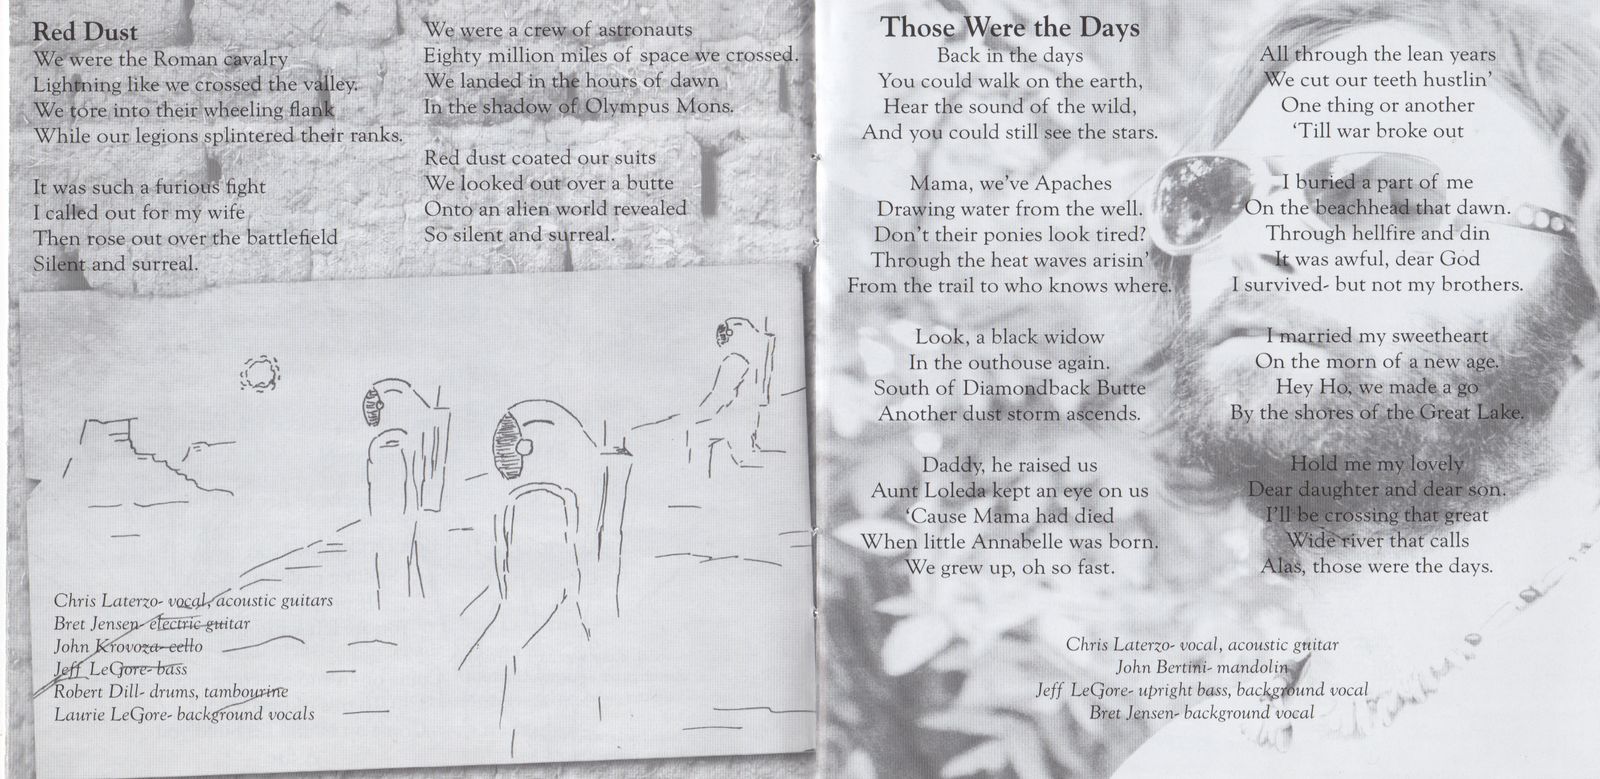 Red Dust
We were the Roman cavalry
Lightning like we crossed the valley.
We tore into their wheeling flank
While our legions splintered their ranks.
It was such a furious fight
I called out for my wife
Then rose out over the battlefield
Silent and surreal.
We were a crew of astronauts
Eighty million miles of space we crossed.
We landed in the hours of dawn
In the shadow of Olympus Mons.
Red dust coated our suits
We looked out over a butte
Onto an alien world revealed
So silent and surreal.
Chris Laterzo- vocal, acoustic guitars
Bret Jensen- electric guitar
John Krovoza- cello
Jeff LeGore- bass
Robert Dill- drums, tambourine
Laurie LeGore- background vocals
Those Were the Days
Back in the days
You could walk on the earth,
Hear the sound of the wild,
And you could still see the stars.
Mama, we've Apaches
Drawing water from the well.
Don't their ponies look tired?
Through the heat waves arisin'
From the trail to who knows where.
Look, a black widow
In the outhouse again.
South of Diamondback Butte
Another dust storm ascends.
Daddy, he raised us
Aunt Loleda kept an eye on us
‘Cause Mama had died
When little Annabelle was born.
We grew up, oh so fast.
All through the lean years
We cut our teeth hustlin'
One thing or another
‘Till war broke out
I buried a part of me
On the beachhead that dawn.
Through hellfire and din
It was awful, dear God
I survived- but not my brothers.
I married my sweetheart
On the morn of a new age.
Hey Ho, we made a go
By the shores of the Great Lake.
Hold me my lovely
Dear daughter and dear son.
I'll be crossing that great
Wide river that calls
Alas, those were the days.
Chris Laterzo- vocal, acoustic guitar
John Bertini- mandolin
Jeff LeGore- upright bass, background vocal
Bret Jensen- background vocal